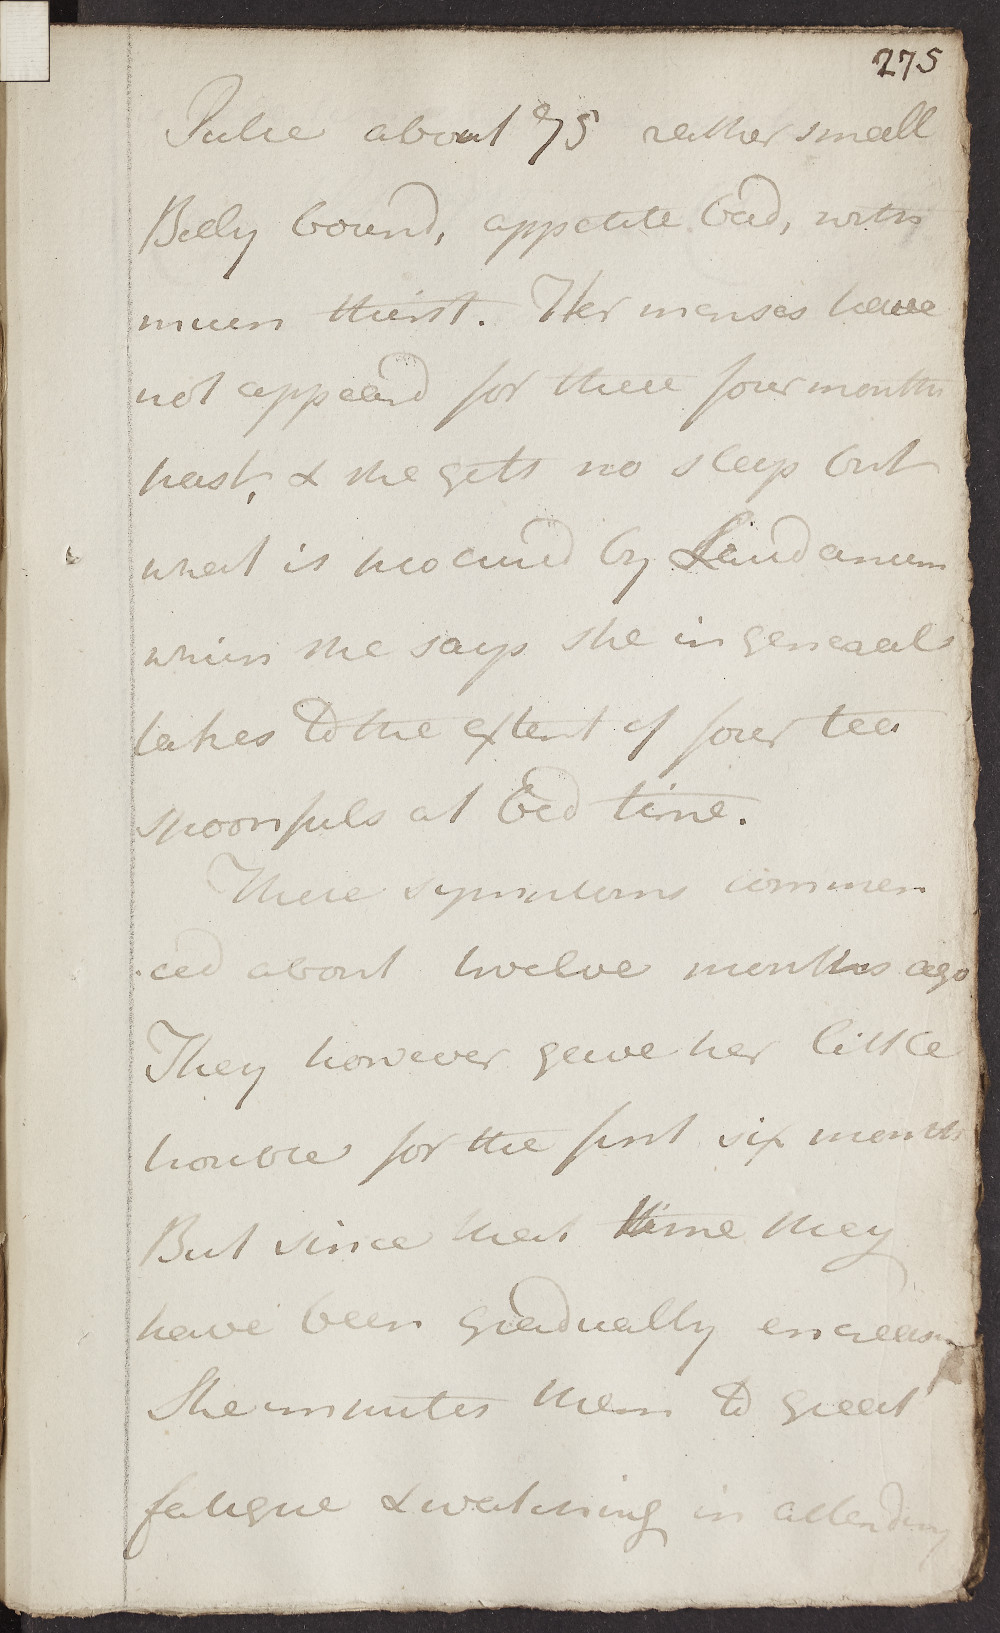 275
Pulse about 75 rather small
Belly bound, appetite bad, with
much thirst. Her menses have
not appeard for these four months
past, & she gets no sleep but
what is procured by Laudanum
which she says she in general
takes to the extent of four tea
spoonfuls at bed time.
These symptoms commen
ced about twelve months ago
They however gave her little
trouble for the first six months
But since that time they
have been gradually encreasing
She imputes them to great
fatigue & watching in attending